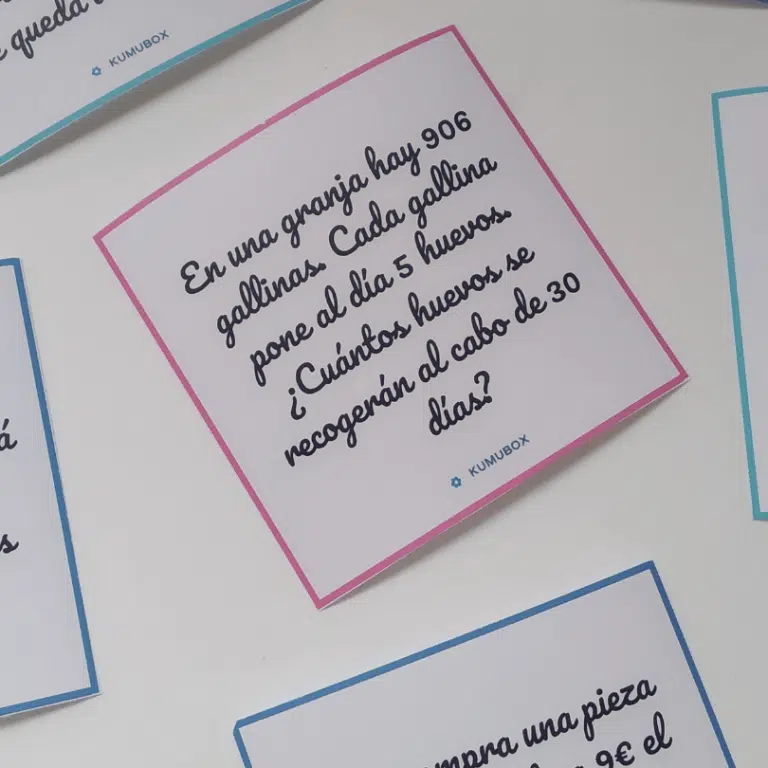 queda
KUMUBOX
En una granja hay 906
gallinas. Cada gallina
pone al día 5 huevos.
¿Cuántos huevos se
recogerán al cabo de 30
días?
KUMUBOX
á
s
una pieza
9€ el